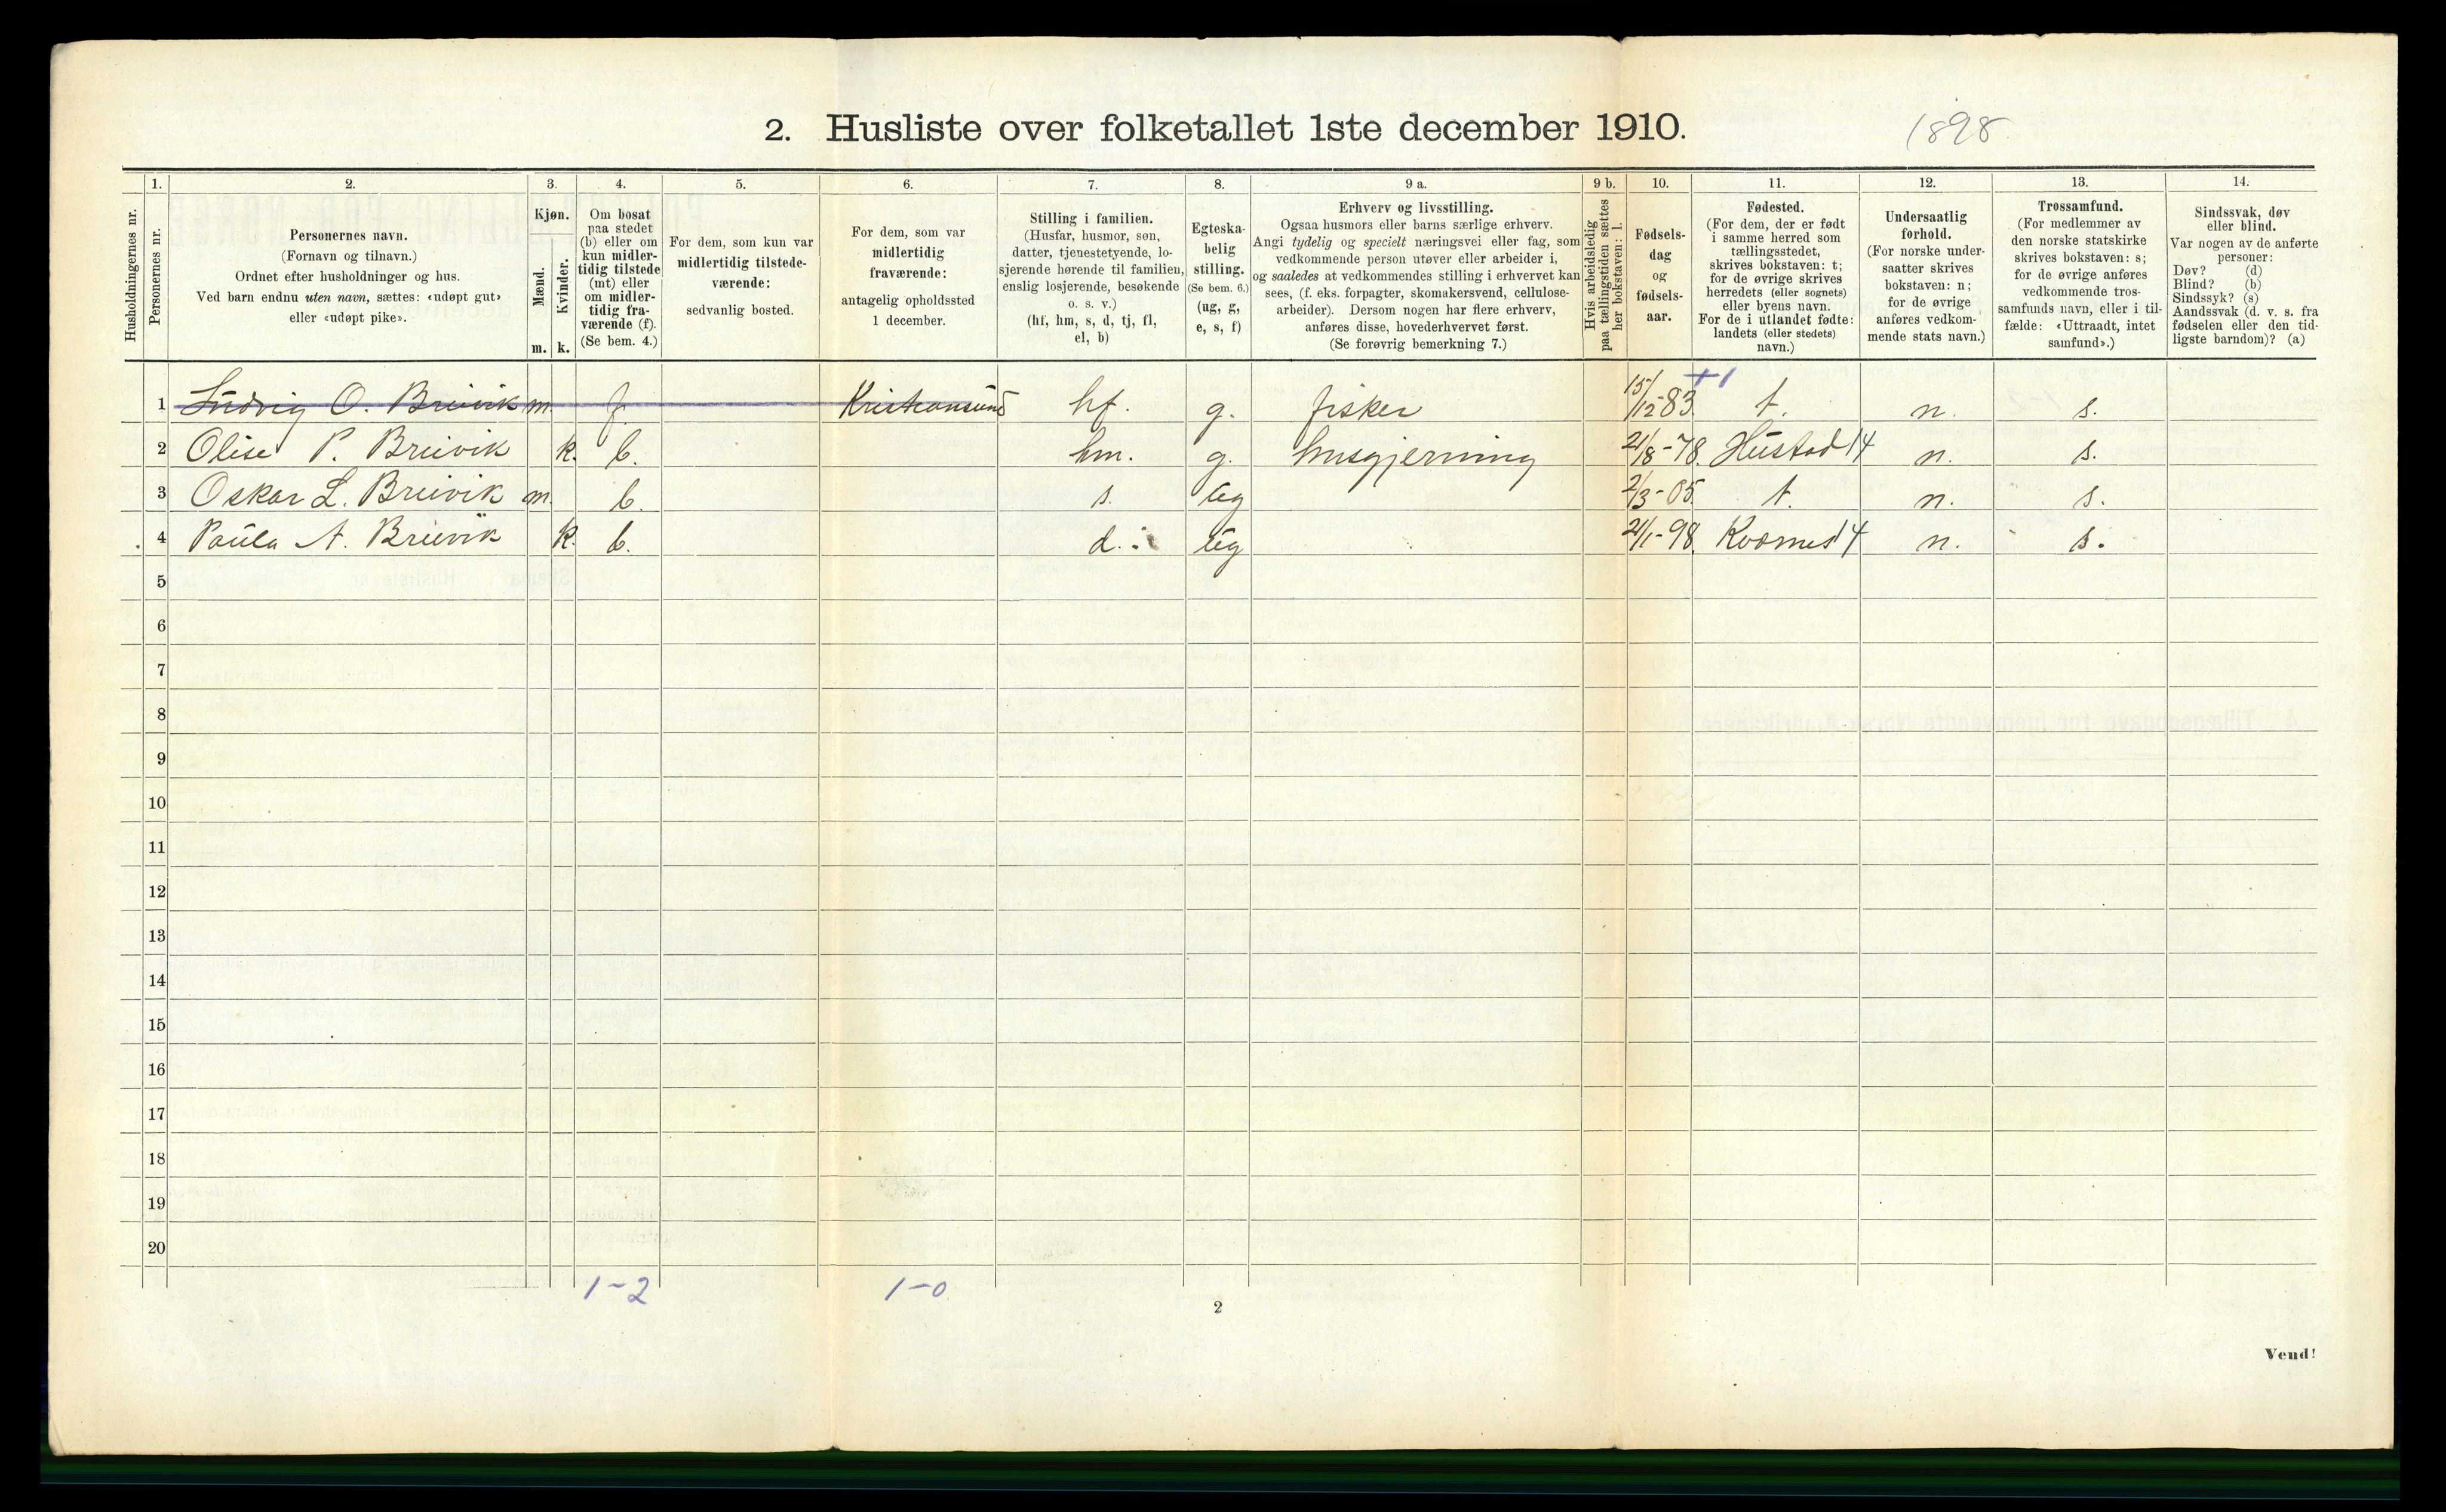 2. Husliste over folketallet 1ste december 1910.
1898
Husholdningernes nr.
1.
Personernes nr.
2.
Personernes navn.
(Fornavn og tilnavn.)
Ordnet efter husholdninger og hus.
Ved barn endnu uten navn, sættes: «udøpt gut»
eller «udøpt pike».
3.
Kjøn.
Mænd.
Kvinder.
m. k.
4.
Om bosat
paa stedet
(b) eller om
kun midler-
tidig tilstede
(mt) eller
om midler-
tidig fra-
værende (f).
(Se bem. 4.)
5.
For dem, som kun var
midlertidig tilstede-
værende:
sedvanlig bosted.
6.
For dem, som var
midlertidig
fraværende:
antagelig opholdssted
1 december.
7.
Stilling i familien.
(Husfar, husmor, søn,
datter, tjenestetyende, lo-
sjerende hørende til familien,
enslig losjerende, besøkende
o. s. v.)
(hf, hm, s, d, tj, fl,
el, b)
8.
Egteska-
belig
stilling.
(Se bem. 6.)
(ug, g,
e, s, f)
9 a.
Erhverv og livsstilling.
Ogsaa husmors eller barns særlige erhverv.
Angi tydelig og specielt næringsvei eller fag, som
vedkommende person utøver eller arbeider i,
og saaledes at vedkommendes stilling i erhvervet kan
sees, (f. eks. forpagter, skomakersvend, cellulose-
arbeider). Dersom nogen har flere erhverv,
anføres disse, hovederhvervet først.
(Se forøvrig bemerkning 7.)
9 b.
Hvis arbeidsledig
paa tællingstiden sættes
her bokstaven: l.
10.
Fødsels-
dag
og
fødsels-
aar.
11.
Fødested.
(For dem, der er født
i samme herred som
tællingsstedet,
skrives bokstaven: t;
for de øvrige skrives
herredets (eller sognets)
eller byens navn.
For de i utlandet fødte:
landets (eller stedets)
navn.)
12.
Undersaatlig
forhold.
(For norske under-
saatter skrives
bokstaven: n;
for de øvrige
anføres vedkom-
mende stats navn.)
13.
Trossamfund.
(For medlemmer av
den norske statskirke
skrives bokstaven: s;
for de øvrige anføres
vedkommende tros-
samfunds navn, eller i til-
fælde: «Uttraadt, intet
samfund».)
14.
Sindssvak, døv
eller blind.
Var nogen av de anførte
personer:
Døv? (d)
Blind? (b)
Sindssyk? (s)
Aandssvak (d. v. s. fra
fødselen eller den tid-
ligste barndom)? (a)
1 Ludvig O. Breivik m. f. Kristiansund hf. g. fisker 15/12-83. t. n. s.
2 Olise P. Breivik k. b. hm. g. husgjerning 21/8-78. Hustad 14 n. s.
3 Oskar L. Breivik m. b. s. ug 2/3-05 t. n. s.
4 Paula A. Breivik k. b. d. ug 21/1-98. Kvernes 14 n. s.
5
6
7
8
9
10
11
12
13
14
15
16
17
18
19
20
1-2 1-0
2
Vend!